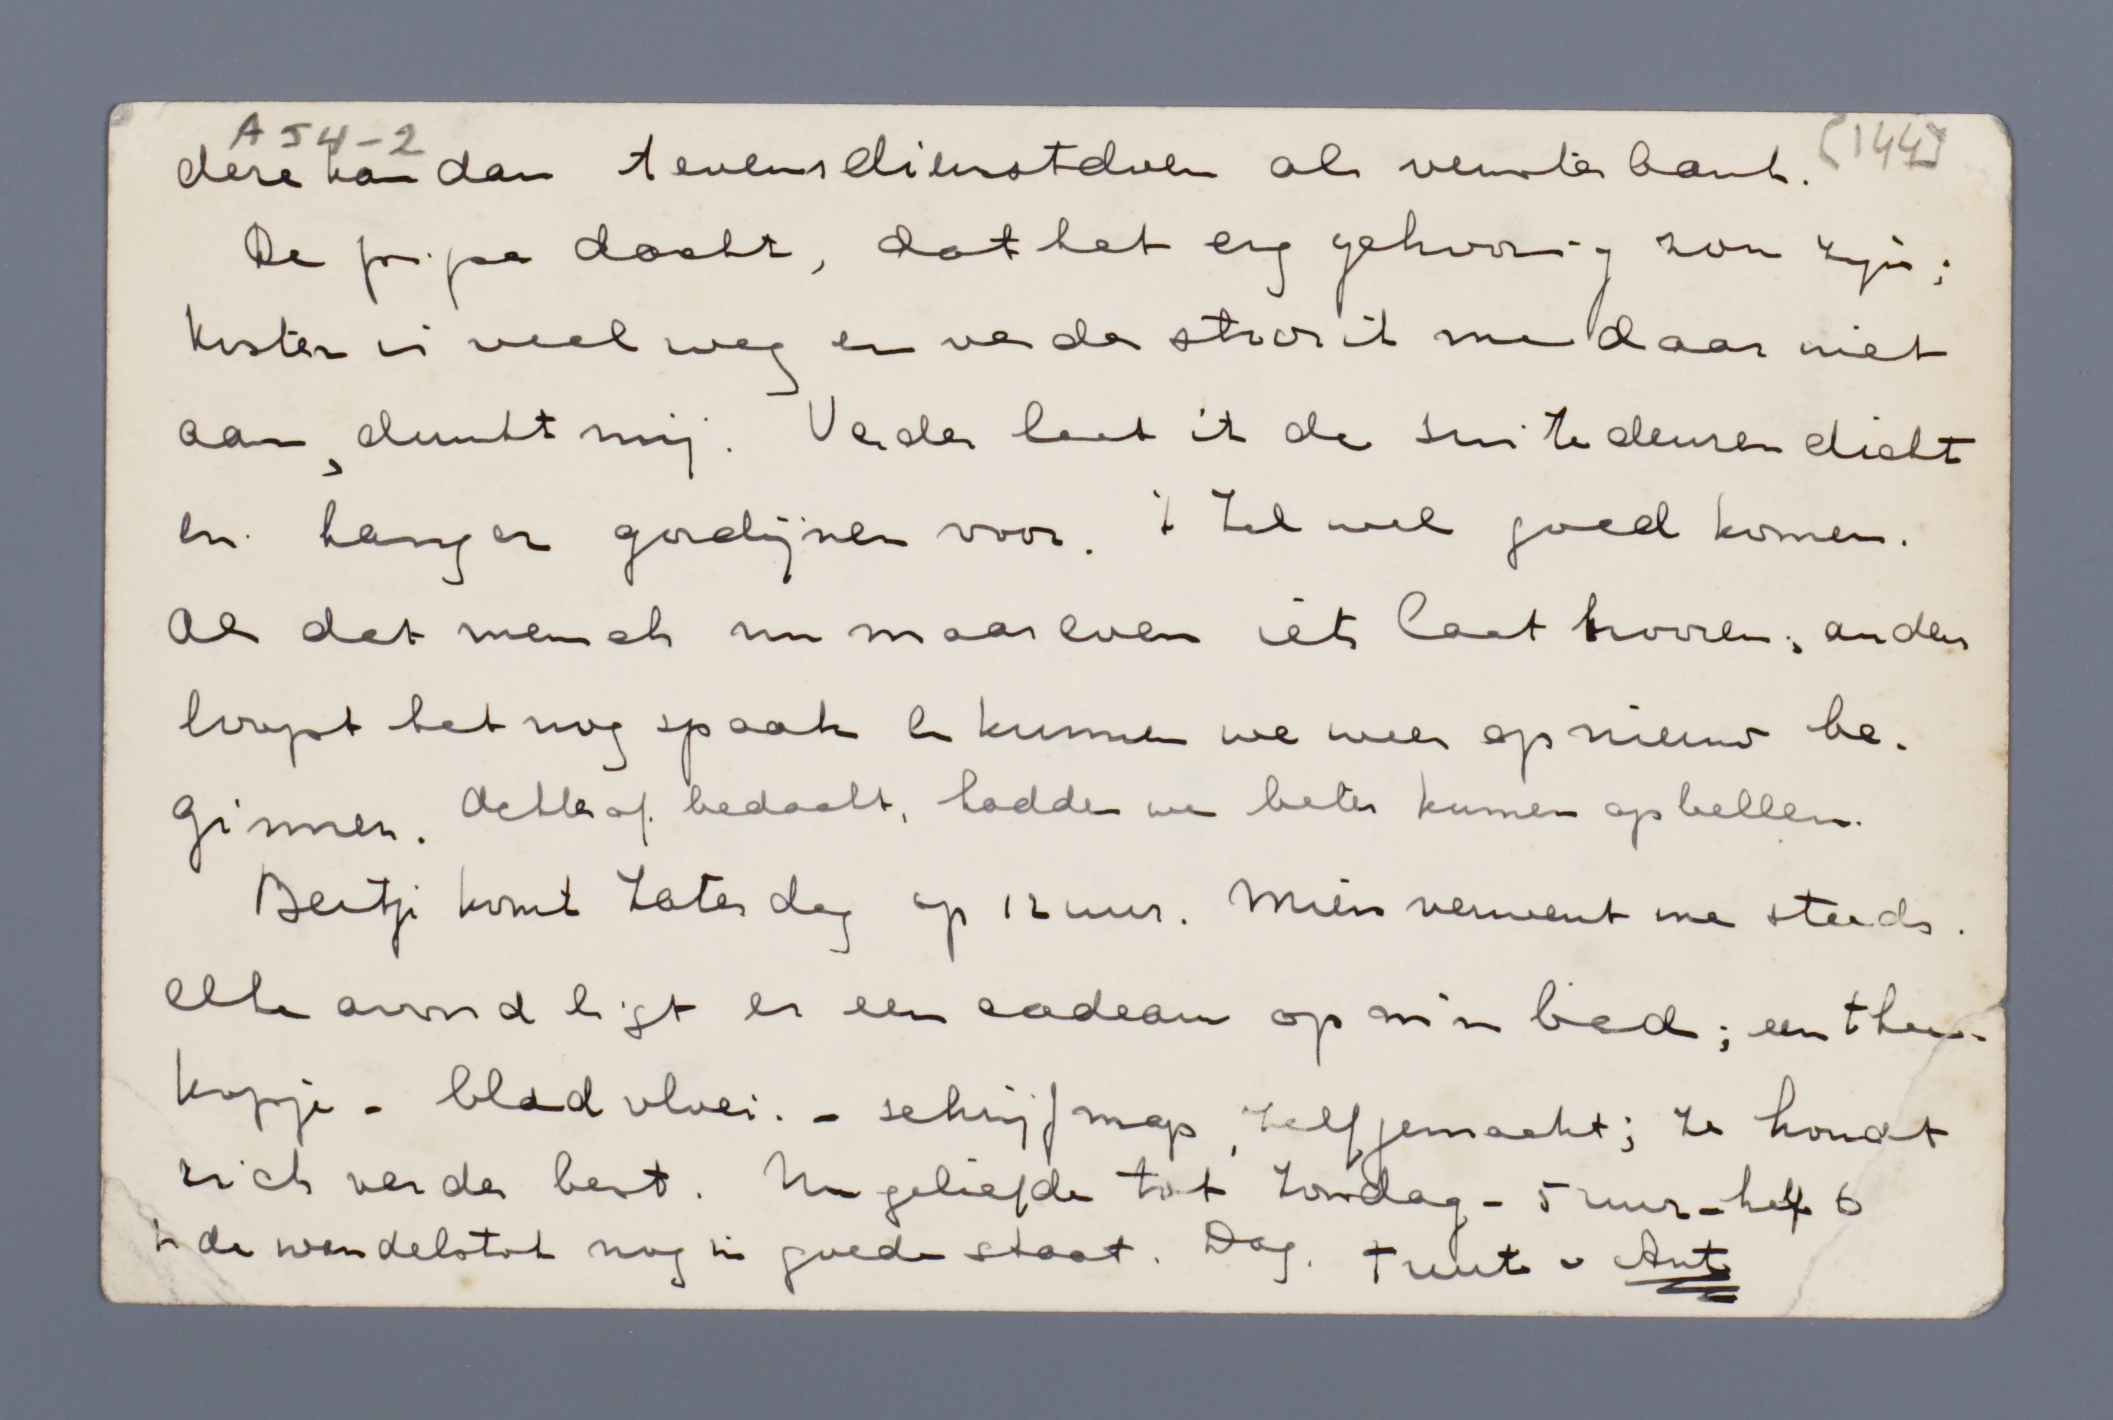 A54-2 (144)
deze kan dan tevens dienst doen als vensterbank.
De pipa dacht, dat het erg gehoorig zou zijn;
kosten is veel weg en verder stoor ik me daar niet
aan, dunkt mij. Verder laat ik de suitedeuren dicht
en hang er gordijnen voor. 't Zal wel goed komen.
Als dat mensch nu maar even iets laat hooren, anders
loopt het nog spaak en kunnen we weer opnieuw be-
ginnen. Achteraf bedacht, hadden we beter kunnen opbellen.
Bertje komt Zaterdag op 12 uur. Mien verwent me steeds.
Elke avond ligt er een cadeau op mijn bed; een thee-
kopje - bladvloei. - schrijfmap, zelfgemaakt; ze houdt
zich verder best. Nu geliefde tot Zondag - 5 uur - half 6
Is de wandelstok nog in goede staat. Dag. Truut v Ant